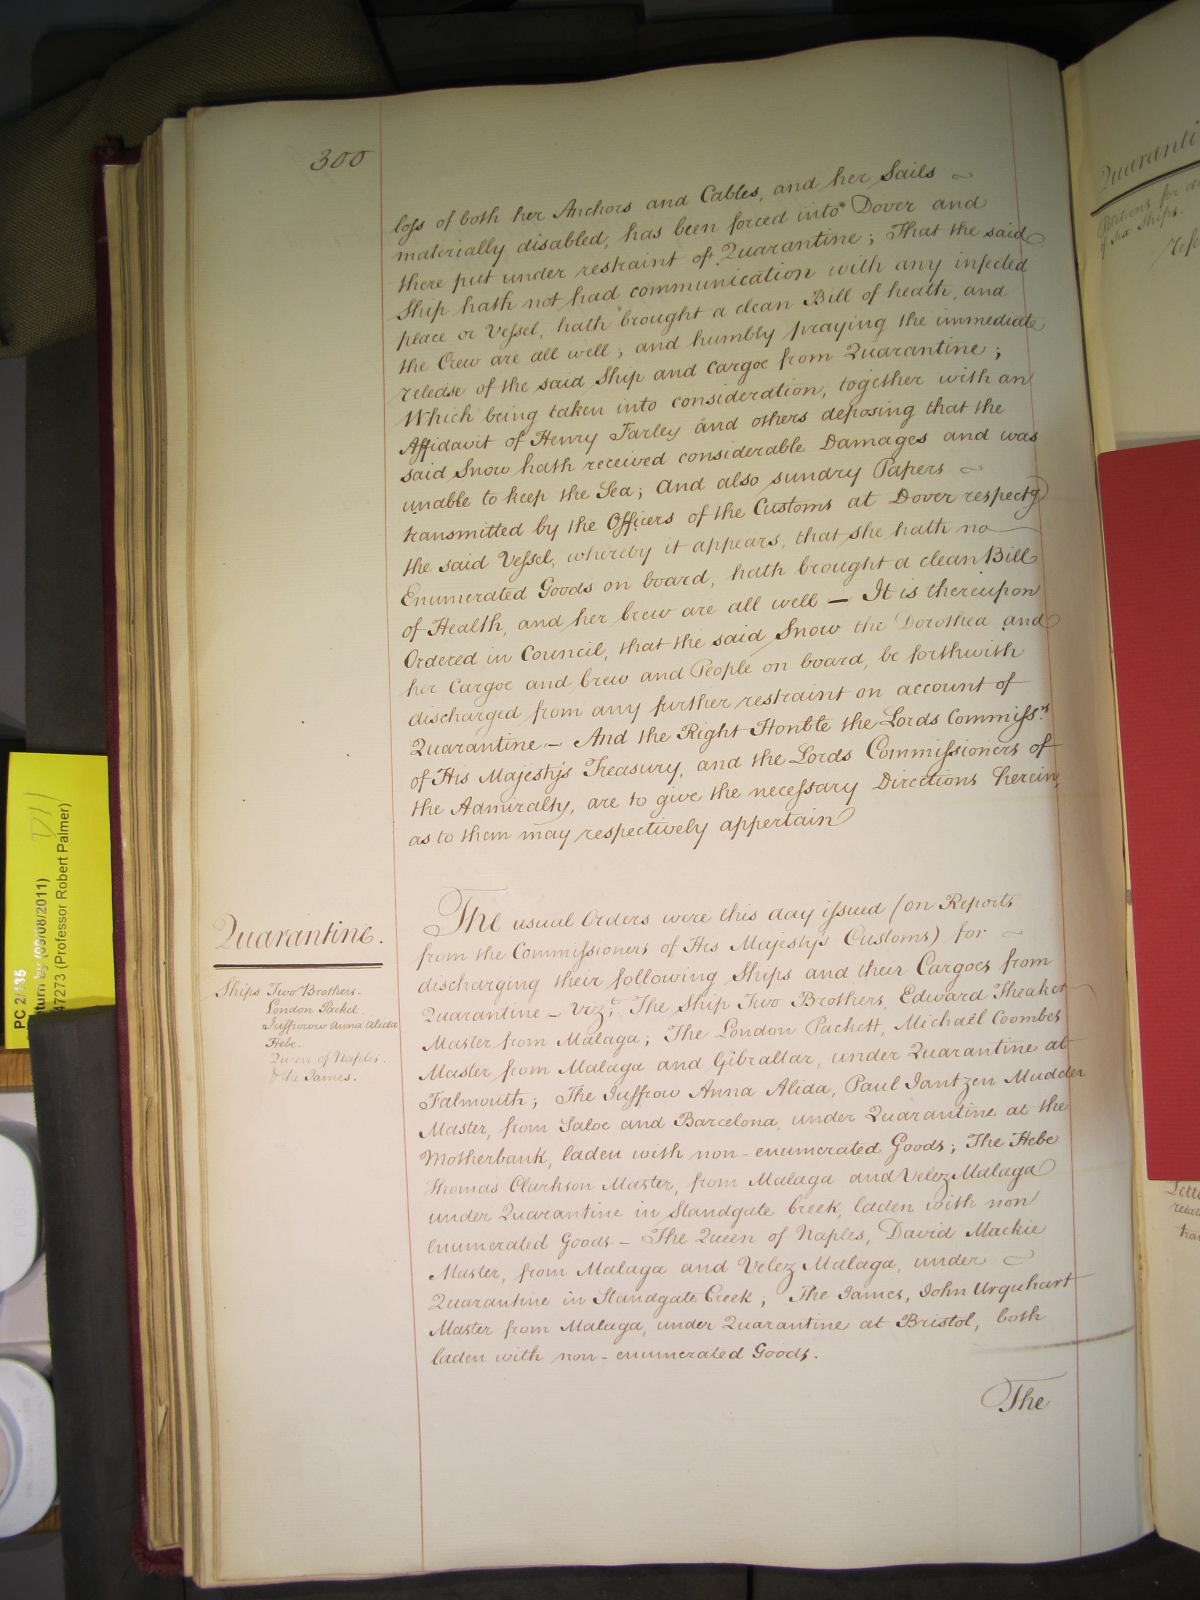 300
loss of both her Anchors and Cables, and her Sails
materially disabled, has been forced into Dover and
there put under restraint of Quarantine; That the said
Ship hath not had communication with any infected
place or Vessel, hath brought a clean Bill of health, and
the Crew are all well; and humbly praying the immediate
release of the said Ship and Cargoe from Quarantine;
Which being taken into consideration, together with an
Affidavit of Henry Farley and others deposing that the
said Snow hath received considerable Damages and was
unable to keep the Sea; And also sundry Papers
transmitted by the Officers of the Customs at Dover respectg
the said Vessel, whereby it appears, that she hath no
Enumerated Goods on board, hath brought a clean Bill
of Health, and her Crew are all well — It is thereupon
Ordered in Council, that the said Snow the Dorothea and
her Cargoe and Crew and People on board, be forthwith
discharged from any further restraint on account of
Quarantine — And the Right Honble the Lords Commissrs
of His Majesty's Treasury, and the Lords Commissioners of
the Admiralty, are to give the necessary Directions herein,
as to them may respectively appertain
Quarantine.
Ships Two Brothers.
London Packet.
Juffrouw Anna Alida
Hebe.
Queen of Naples.
& the James.
The usual Orders were this day issued (on Reports
from the Commissioners of His Majesty's Customs) for
discharging their following Ships and their Cargoes from
Quarantine — vizt. The Ship Two Brothers, Edward Theaker
Master from Malaga; The London Packett, Michaël Coombes
Master from Malaga and Gibraltar, under Quarantine at
Falmouth; The Juffrow Anna Alida, Paul Jantzen Mudder
Master, from Saloe and Barcelona, under Quarantine at the
Motherbank, laden with non-enumerated Goods; The Hebe
Thomas Clarkson Master, from Malaga and Velez Malaga
under Quarantine in Standgate Creek, laden with non
enumerated Goods — The Queen of Naples, David Mackie
Master, from Malaga and Velez Malaga, under
Quarantine in Standgate Creek; The James, John Urquhart
Master from Malaga, under Quarantine at Bristol, both
laden with non-enumerated Goods.
The
PC 2/135
turn by (09/08/2011)
47273 (Professor Robert Palmer)
D11
Quaranti
Petitions for
of Sea Ships.